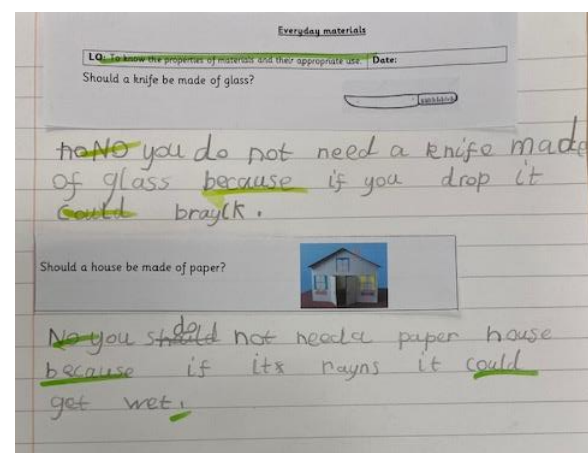 Everyday materials
LO: To know the properties of materials and their appropriate use. Date:
Should a knife be made of glass?
no NO you do not need a knife made
of glass because if you drop it
could brayck.
Should a house be made of paper?
do
No you should not needa paper house
because if its rayns it could
get wet.